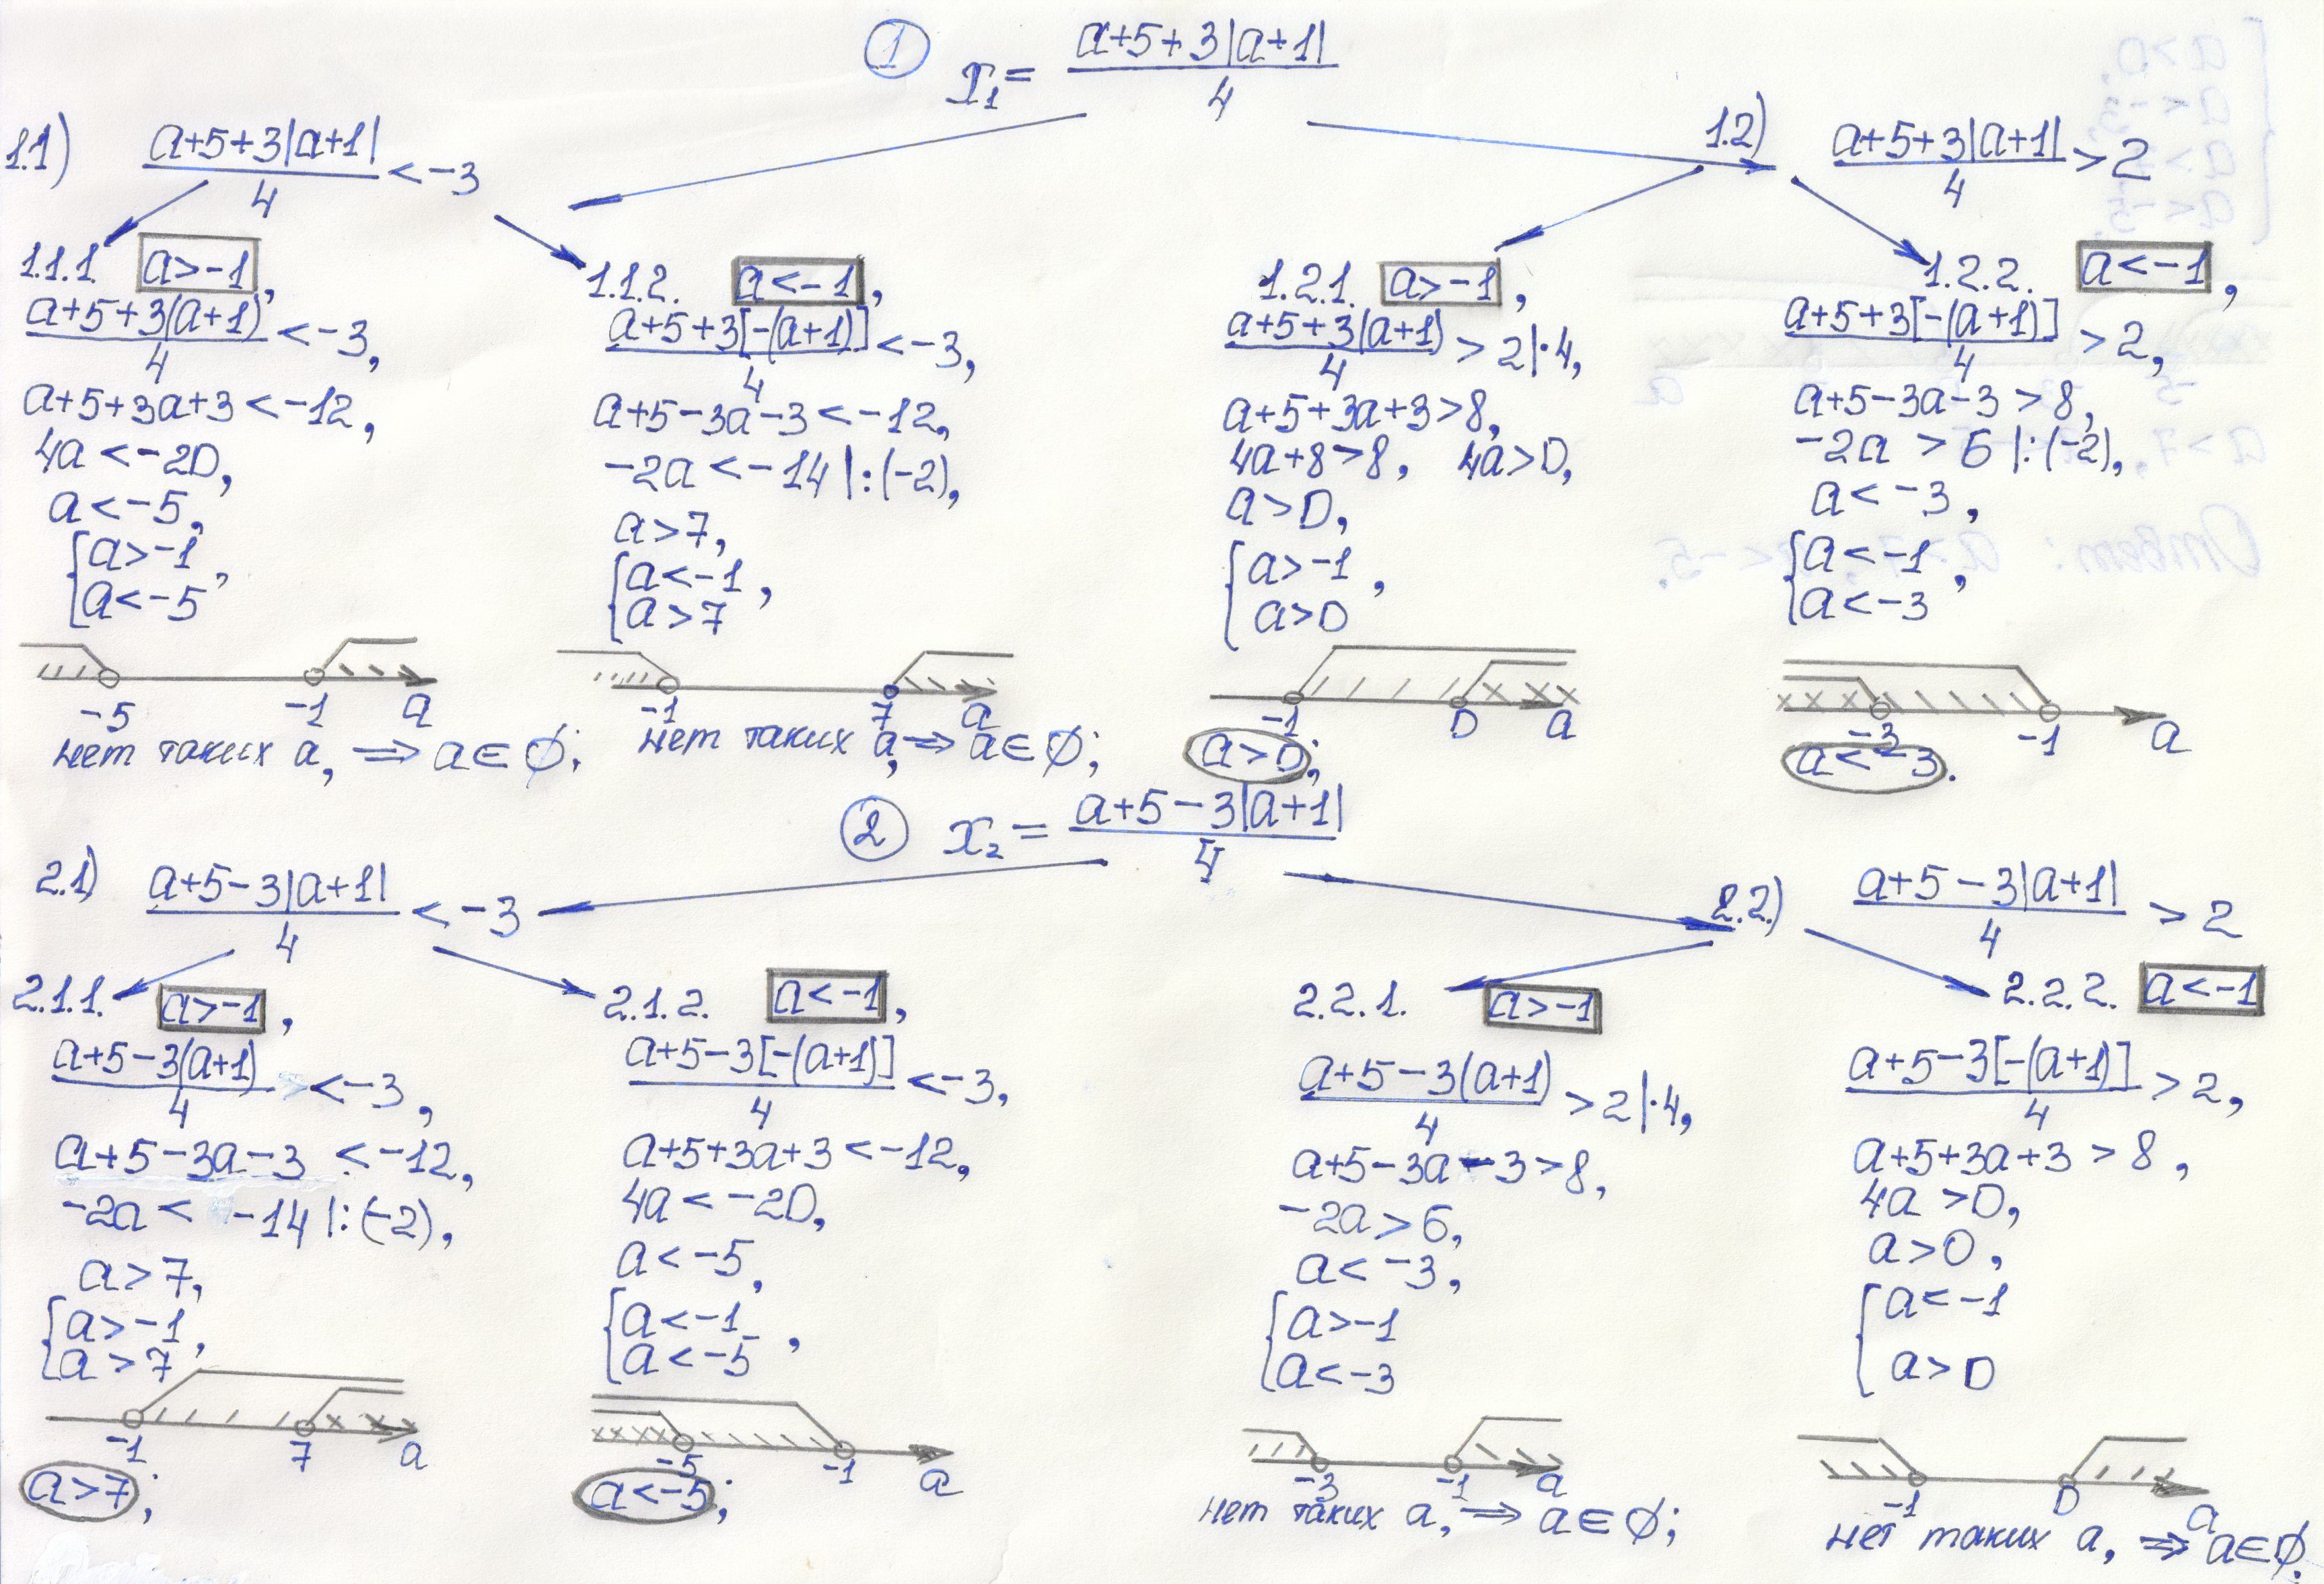 ① x₁ = (a+5+3|a+1|)/4
1.1) (a+5+3|a+1|)/4 < -3
1.1.1. a>-1,
(a+5+3(a+1))/4 < -3,
a+5+3a+3 < -12,
4a < -20,
a < -5,
{a>-1,
{a<-5
-5 -1 a
нет таких a, ⇒ a∈∅;
1.1.2. a<-1,
(a+5+3[-(a+1)])/4 < -3,
a+5-3a-3 < -12,
-2a < -14 |:(-2),
a>7,
{a<-1,
{a>7
-1 7 a
нет таких a, ⇒ a∈∅;
1.2) (a+5+3|a+1|)/4 > 2
1.2.1. a>-1,
(a+5+3(a+1))/4 > 2 |·4,
a+5+3a+3>8,
4a+8>8, 4a>0,
a>0,
{a>-1,
{a>0
-1 0 a
a>0;
1.2.2. a<-1,
(a+5+3[-(a+1)])/4 > 2,
a+5-3a-3 > 8,
-2a > 6 |:(-2),
a < -3,
{a<-1,
{a<-3
-3 -1 a
a<-3.
② x₂ = (a+5-3|a+1|)/4
2.1) (a+5-3|a+1|)/4 < -3
2.1.1. a>-1,
(a+5-3(a+1))/4 < -3,
a+5-3a-3 < -12,
-2a < -14 |:(-2),
a>7,
{a>-1,
{a>7
-1 7 a
a>7;
2.1.2. a<-1,
(a+5-3[-(a+1)])/4 < -3,
a+5+3a+3 < -12,
4a < -20,
a < -5,
{a<-1,
{a<-5
-5 -1 a
a<-5;
2.2) (a+5-3|a+1|)/4 > 2
2.2.1. a>-1
(a+5-3(a+1))/4 > 2 |·4,
a+5-3a-3>8,
-2a>6,
a < -3,
{a>-1
{a<-3
-3 -1 a
нет таких a, ⇒ a∈∅;
2.2.2. a<-1
(a+5-3[-(a+1)])/4 > 2,
a+5+3a+3 > 8,
4a >0,
a>0,
{a<-1
{a>0
-1 0 a
нет таких a, ⇒ a∈∅.